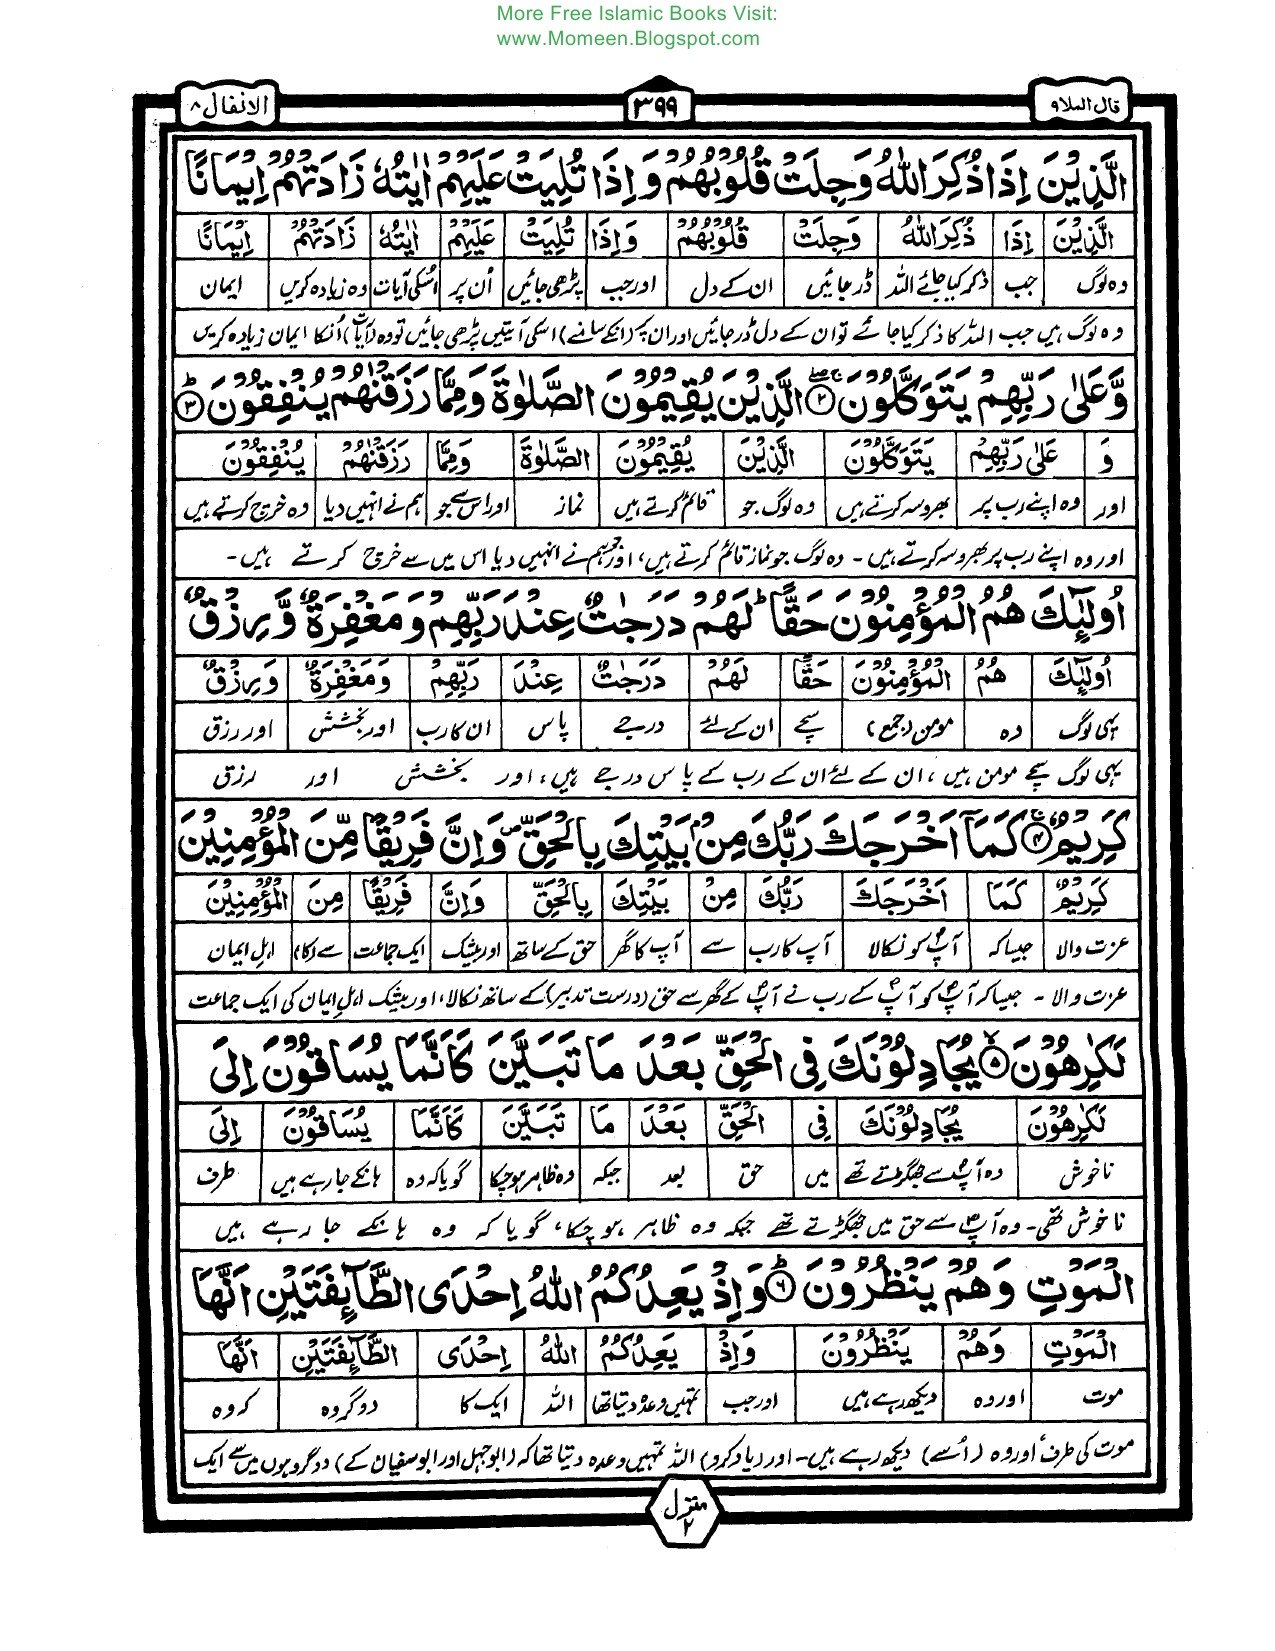 More Free Islamic Books Visit:
www.Momeen.Blogspot.com
قال الملا ٩
٣٩٩
الانفال ٨
الَّذِيْنَ اِذَا ذُكِرَ اللّٰهُ وَجِلَتْ قُلُوْبُهُمْ وَاِذَا تُلِيَتْ عَلَيْهِمْ اٰيٰتُهٗ زَادَتْهُمْ اِيْمَانًا
الَّذِيْنَ اِذَا ذُكِرَ اللّٰهُ وَجِلَتْ قُلُوْبُهُمْ وَاِذَا تُلِيَتْ عَلَيْهِمْ اٰيٰتُهٗ زَادَتْهُمْ اِيْمَانًا
وہ لوگ جب ذکر کیا جائے اللہ ڈر جائیں ان کے دل اور جب پڑھی جائیں اُن پر اسکی آیات وہ زیادہ کریں ایمان
وہ لوگ ہیں جب اللہ کا ذکر کیا جائے تو ان کے دل ڈر جائیں اور ان پر (انکے سامنے) اسکی آیتیں پڑھی جائیں تو وہ (آیات) اُنکا ایمان زیادہ کریں
وَّعَلٰى رَبِّهِمْ يَتَوَكَّلُوْنَ ۝٢ الَّذِيْنَ يُقِيْمُوْنَ الصَّلٰوةَ وَمِمَّا رَزَقْنٰهُمْ يُنْفِقُوْنَ ۝٣
وَ عَلٰى رَبِّهِمْ يَتَوَكَّلُوْنَ الَّذِيْنَ يُقِيْمُوْنَ الصَّلٰوةَ وَمِمَّا رَزَقْنٰهُمْ يُنْفِقُوْنَ
اور وہ اپنے رب پر بھروسہ کرتے ہیں وہ لوگ جو قائم کرتے ہیں نماز اور اس سے جو ہم نے انہیں دیا وہ خرچ کرتے ہیں
اور وہ اپنے رب پر بھروسہ کرتے ہیں - وہ لوگ جو نماز قائم کرتے ہیں، اور جو ہم نے انہیں دیا اس میں سے خرچ کرتے ہیں -
اُولٰٓئِكَ هُمُ الْمُؤْمِنُوْنَ حَقًّا ؕ لَهُمْ دَرَجٰتٌ عِنْدَ رَبِّهِمْ وَمَغْفِرَةٌ وَّرِزْقٌ
اُولٰٓئِكَ هُمُ الْمُؤْمِنُوْنَ حَقًّا لَهُمْ دَرَجٰتٌ عِنْدَ رَبِّهِمْ وَمَغْفِرَةٌ وَّرِزْقٌ
یہی لوگ وہ مومن (جمع) سچے ان کے لئے درجے پاس ان کا رب اور بخشش اور رزق
یہی لوگ سچے مومن ہیں، ان کے لئے ان کے رب کے پاس درجے ہیں، اور بخشش اور رزق
كَرِيْمٌ ۝٤ كَمَآ اَخْرَجَكَ رَبُّكَ مِنْۢ بَيْتِكَ بِالْحَقِّ وَاِنَّ فَرِيْقًا مِّنَ الْمُؤْمِنِيْنَ
كَرِيْمٌ كَمَآ اَخْرَجَكَ رَبُّكَ مِنْ بَيْتِكَ بِالْحَقِّ وَاِنَّ فَرِيْقًا مِنَ الْمُؤْمِنِيْنَ
عزت والا جیسا کہ آپؐ کو نکالا آپ کا رب سے آپ کا گھر حق کے ساتھ اور بیشک ایک جماعت سے (کا) اہلِ ایمان
عزت والا - جیسا کہ آپؐ کو آپؐ کے رب نے آپؐ کے گھر سے حق (درست تدبیر) کے ساتھ نکالا، اور بیشک اہلِ ایمان کی ایک جماعت
لَكٰرِهُوْنَ ۝٥ يُجَادِلُوْنَكَ فِي الْحَقِّ بَعْدَ مَا تَبَيَّنَ كَاَنَّمَا يُسَاقُوْنَ اِلَى
لَكٰرِهُوْنَ يُجَادِلُوْنَكَ فِي الْحَقِّ بَعْدَ مَا تَبَيَّنَ كَاَنَّمَا يُسَاقُوْنَ اِلَى
ناخوش وہ آپؐ سے جھگڑتے تھے میں حق بعد جبکہ وہ ظاہر ہو چکا گویا کہ وہ ہانکے جا رہے ہیں طرف
ناخوش تھی - وہ آپؐ سے حق میں جھگڑتے تھے جبکہ وہ ظاہر ہو چکا، گویا کہ وہ ہانکے جا رہے ہیں
الْمَوْتِ وَهُمْ يَنْظُرُوْنَ ۝٦ وَاِذْ يَعِدُكُمُ اللّٰهُ اِحْدَى الطَّآئِفَتَيْنِ اَنَّهَا
الْمَوْتِ وَهُمْ يَنْظُرُوْنَ وَاِذْ يَعِدُكُمُ اللّٰهُ اِحْدَى الطَّآئِفَتَيْنِ اَنَّهَا
موت اور وہ دیکھ رہے ہیں اور جب تمہیں وعدہ دیتا تھا اللہ ایک کا دو گروہ کہ وہ
موت کی طرف اور وہ (اُسے) دیکھ رہے ہیں - اور (یاد کرو) اللہ تمہیں وعدہ دیتا تھا کہ (ابوجہل اور ابوسفیان کے) دو گروہوں میں سے ایک
منزل ٢